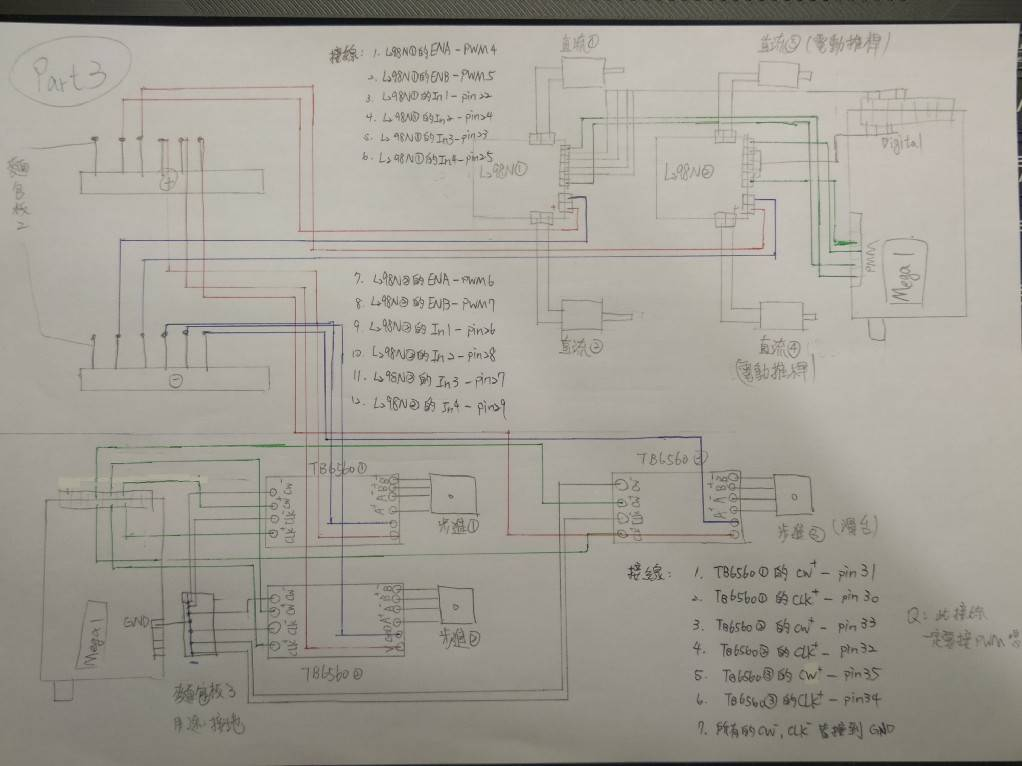 Part 3
接線: 1. L298N①的ENA - PWM4
2. L298N①的ENB - PWM5
3. L298N①的In1 - pin22
4. L298N①的In2 - pin24
5. L298N①的In3 - pin23
6. L298N①的In4 - pin25
直流①
直流③ (電動推桿)
L298N①
L298N②
Digital
PWM
Mega 1
麵包板2
+
-
7. L298N②的ENA - PWM6
8. L298N②的ENB - PWM7
9. L298N②的In1 - pin26
10. L298N②的In2 - pin28
11. L298N②的In3 - pin27
12. L298N②的In4 - pin29
直流②
直流④
(電動推桿)
TB6560①
CW-
CW+
CLK-
CLK+
B- B+ A- A+
步進①
TB6560③
B- B+ A- A+
步進③ (滑台)
Mega 1
GND
CW-
CW+
CLK-
CLK+
步進②
TB6560②
麵包板3
用途:接地
接線: 1. TB6560①的CW+ - pin31
2. TB6560①的CLK+ - pin30
3. TB6560②的CW+ - pin33
4. TB6560②的CLK+ - pin32
5. TB6560③的CW+ - pin35
6. TB6560③的CLK+ - pin34
7. 所有的CW-, CLK- 皆接到GND
Q: 此接線
一定要接PWM嗎